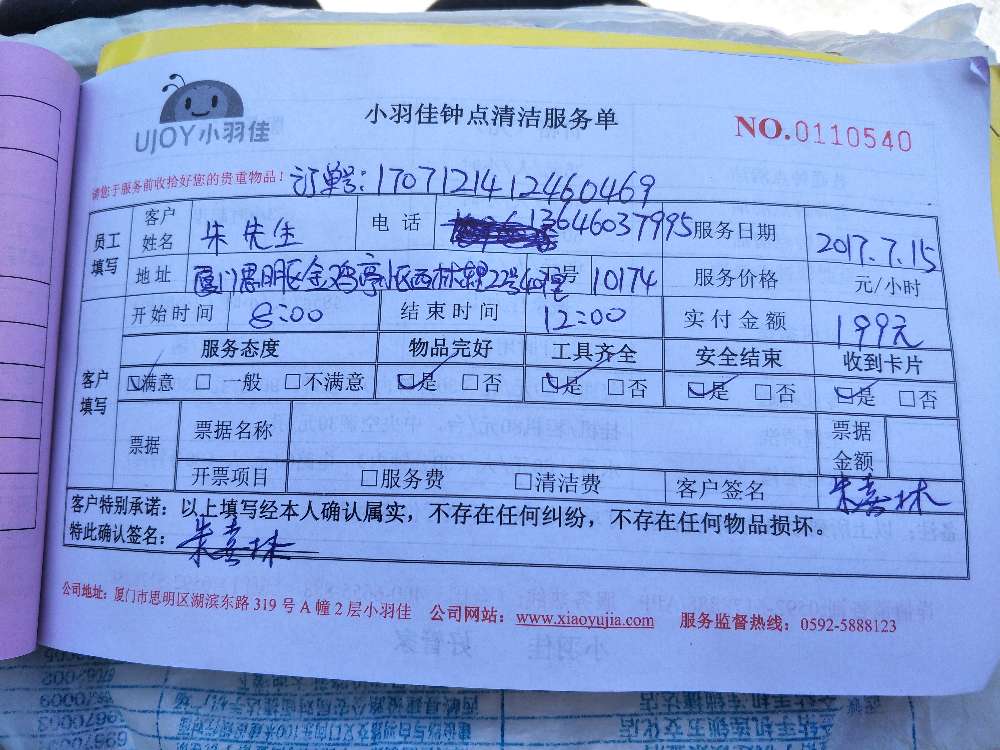 UJOY小羽佳
小羽佳钟点清洁服务单
NO.0110540
请您于服务前收拾好您的贵重物品!
订单号:1707121412460469
员工填写 客户姓名 朱先生 电话 13646037995 服务日期 2017.7.15
地址 厦门思明区金鸡亭小区西林 22号 工号 10174 服务价格 元/小时
开始时间 8:00 结束时间 12:00 实付金额 199元
客户填写 服务态度 物品完好 工具齐全 安全结束 收到卡片
☑满意 □一般 □不满意 ☑是 □否 ☑是 □否 ☑是 □否 ☑是 □否
票据 票据名称 票据金额
开票项目 □服务费 □清洁费 客户签名 朱喜林
客户特别承诺:以上填写经本人确认属实,不存在任何纠纷,不存在任何物品损坏。
特此确认签名:朱喜林
公司地址:厦门市思明区湖滨东路319号A幢2层小羽佳 公司网站:www.xiaoyujia.com 服务监督热线:0592-5888123